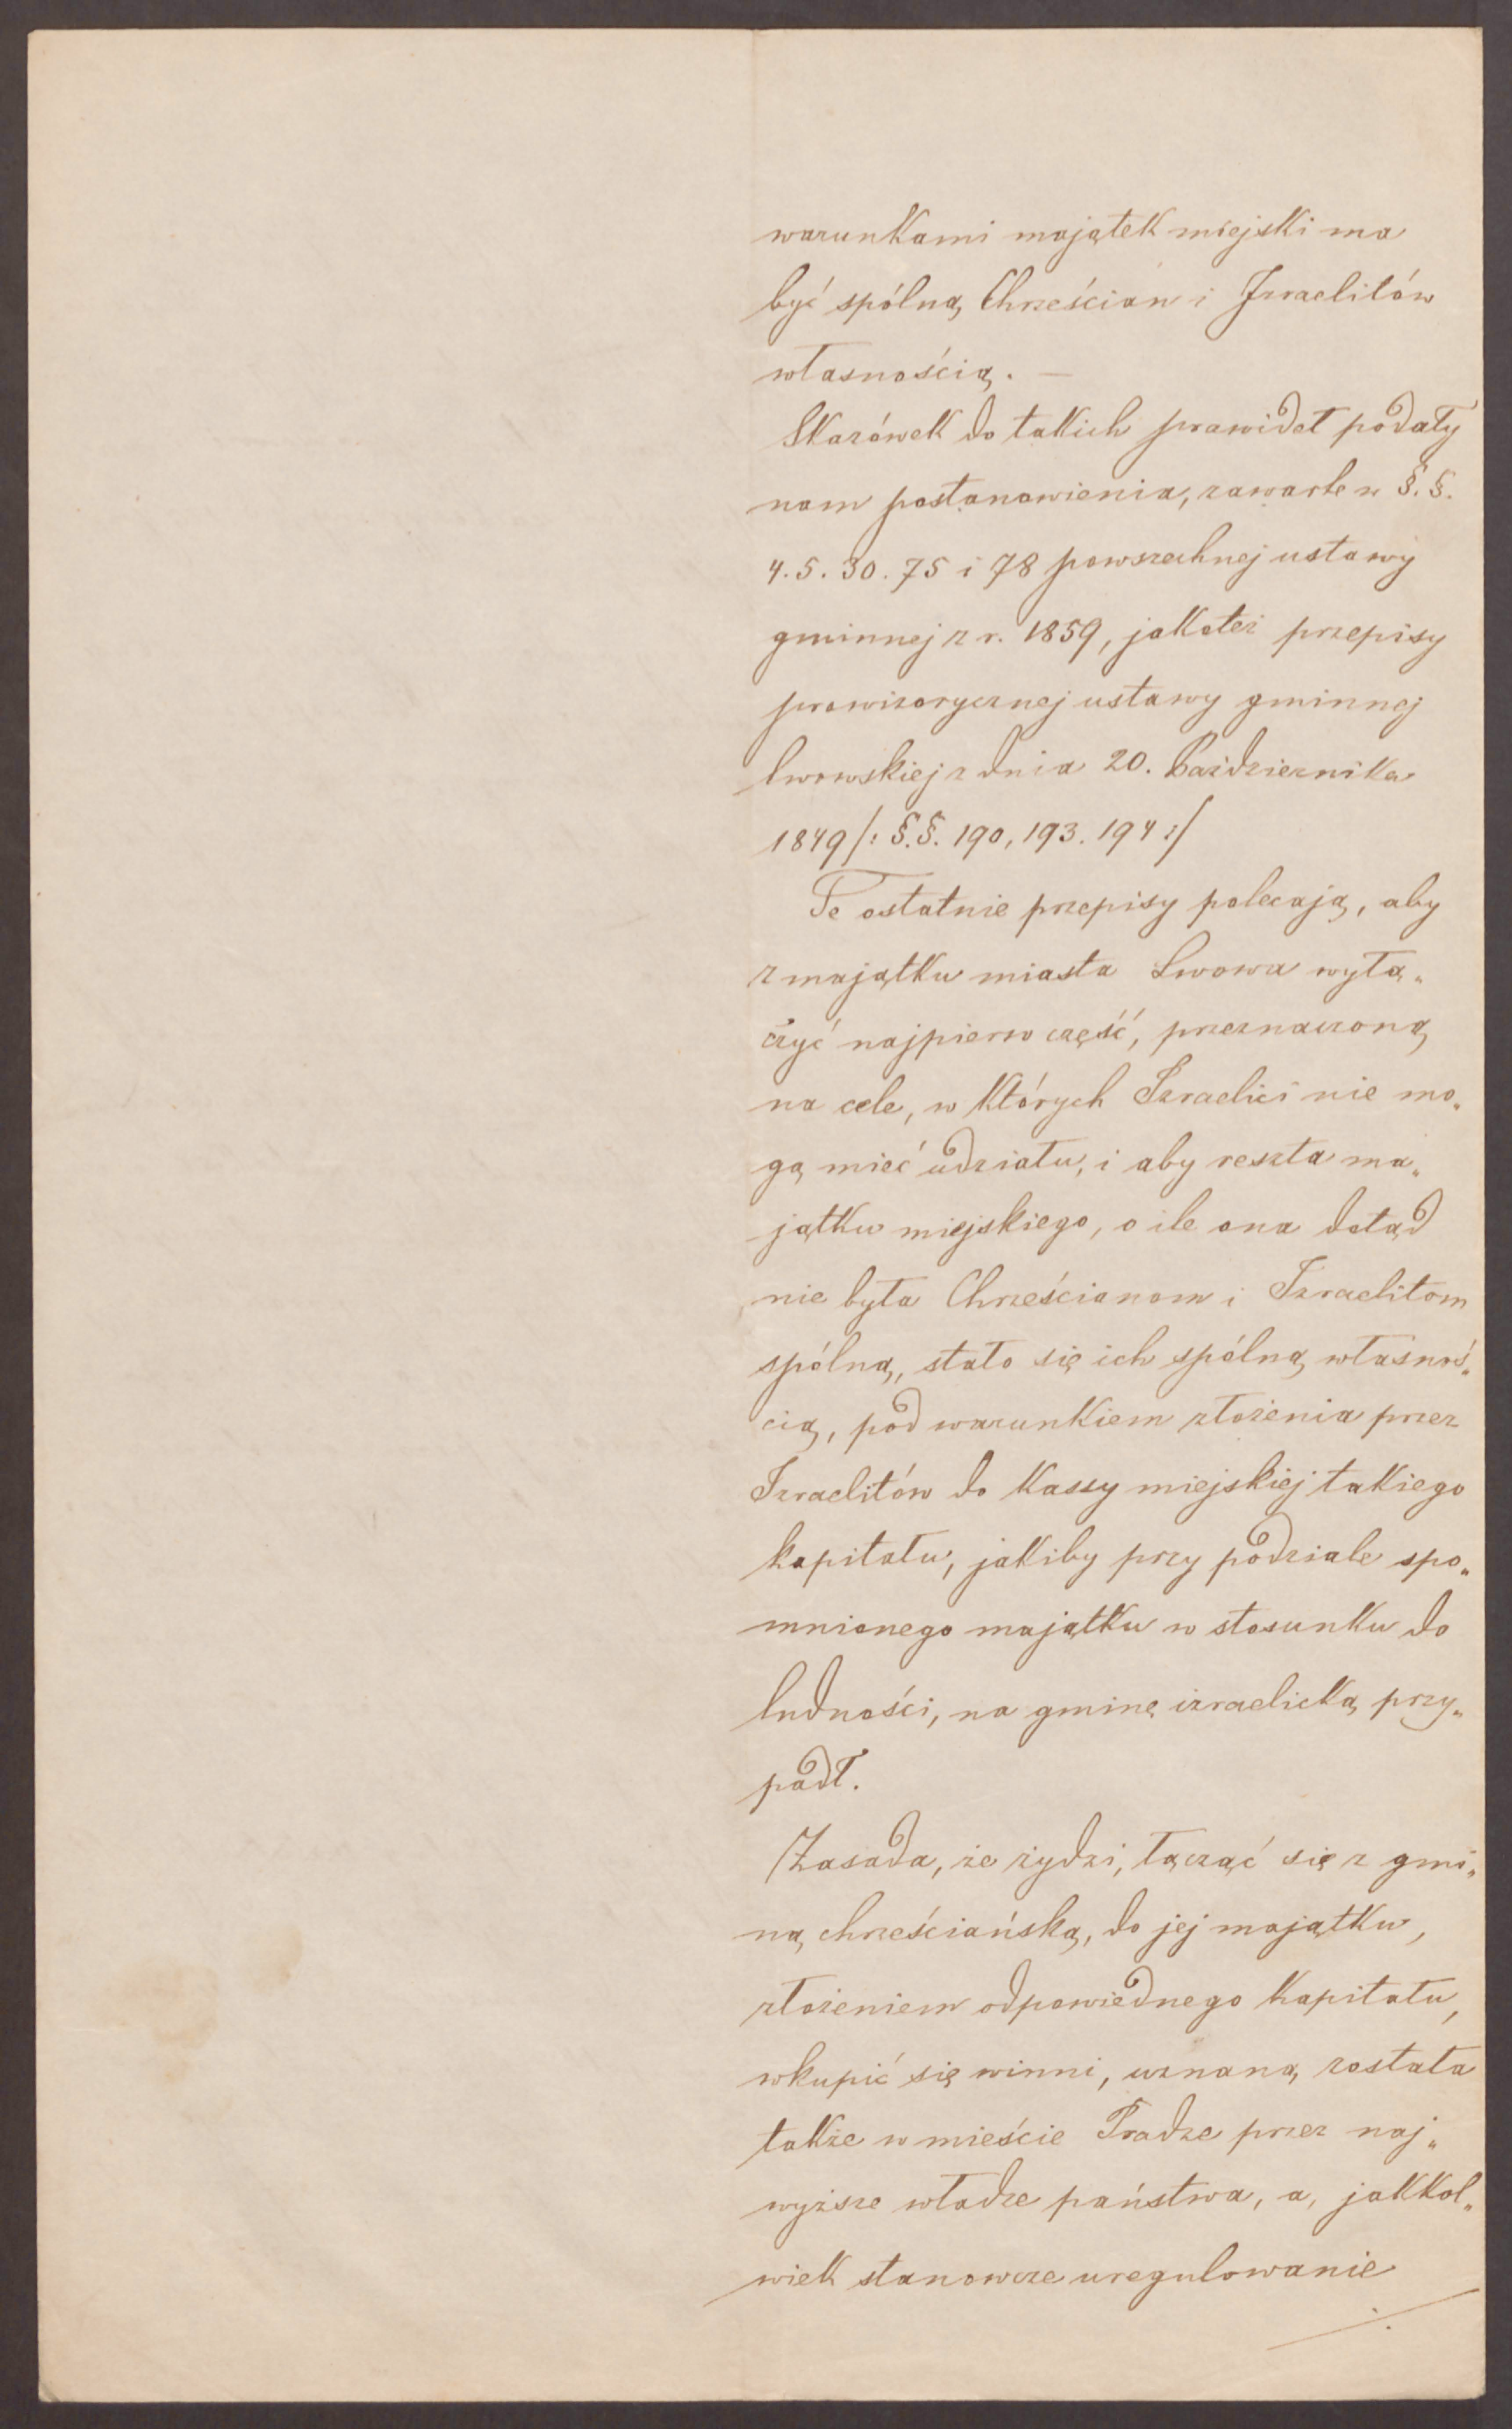 warunkami majątek miejski ma
być spólną Chrześcian i Izraelitów
własnością. —
Skazówek do takich prawideł podały
nam postanowienia, zawarte w §.§.
4. 5. 30. 75 i 78 powszechnej ustawy
gminnej z r. 1859, jakoteż przepisy
prowizorycznej ustawy gminnej
lwowskiej z dnia 20. Października
1849 /: §.§. 190, 193. 194 :/
Te ostatnie przepisy polecają, aby
z majątku miasta Lwowa wyłą„
czyć najpierw część, przeznaczoną
na cele, w których Izraelici nie mo„
gą mieć udziału, i aby reszta ma„
jątku miejskiego, o ile ona dotąd
nie była Chrześcianom i Izraelitom
spólną, stało się ich spólną własnoś„
cią, pod warunkiem złożenia przez
Izraelitów do Kassy miejskiej takiego
kapitału, jakiby przy podziale spo„
mnionego majątku w stosunku do
ludności, na gminę izraelicką przy„
padł.
Zasada, że żydzi, łącząć się z gmi„
ną chrześciańską, do jej majątku,
złożeniem odpowiednego Kapitału,
wkupić się winni, uznaną została
także w mieście Pradze przez naj„
wyższe władze państwa, a, jakkol„
wiek stanowcze uregulowanie
./.